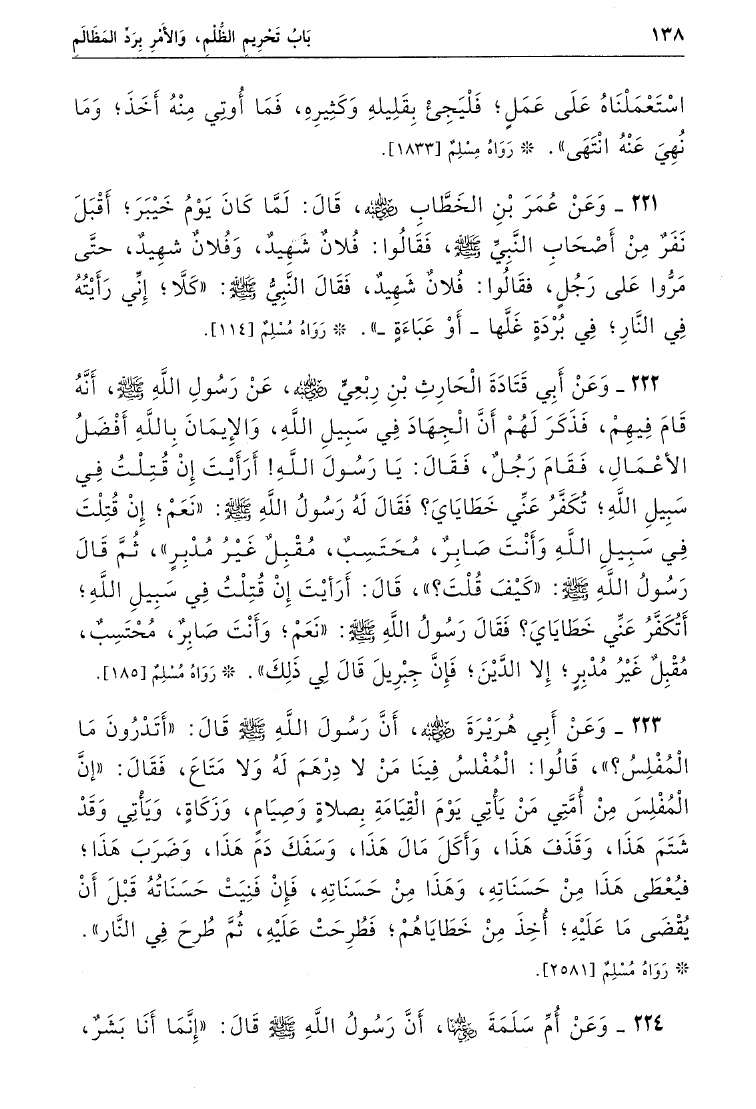 ١٣٨
بَابُ تَحْرِيمِ الظُّلْمِ، وَالأَمْرِ بِرَدِّ المَظَالَمِ
اسْتَعْمَلْنَاهُ عَلَى عَمَلٍ؛ فَلْيَجِئْ بِقَلِيلِهِ وَكَثِيرِهِ، فَمَا أُوتِي مِنْهُ أَخَذَ؛ وَمَا
نُهِيَ عَنْهُ انْتَهَى». * رَوَاهُ مِسْلِمٌ [١٨٣٣].
٢٢١ ـ وَعَنْ عُمَرَ بْنِ الخَطَّابِ رضي الله عنه، قَالَ: لَمَّا كَانَ يَوْمُ خَيْبَرَ؛ أَقْبَلَ
نَفَرٌ مِنْ أَصْحَابِ النَّبِيِّ ﷺ، فَقَالُوا: فُلانٌ شَهِيدٌ، وَفُلانٌ شهِيدٌ، حتَّى
مَرُّوا عَلى رَجُلٍ، فقَالُوا: فُلانٌ شَهِيدٌ، فَقَالَ النَّبِيُّ ﷺ: «كَلَّا؛ إِنِّي رَأَيْتُهُ
فِي النَّارِ؛ فِي بُرْدَةٍ غَلَّها ـ أَوْ عَبَاءَةٍ ـ». * رَوَاهُ مُسْلِمٌ [١١٤].
٢٢٢ ـ وَعَنْ أَبِي قَتَادَةَ الْحَارِثِ بْنِ رِبْعِيٍّ رضي الله عنه، عَنْ رَسُولِ اللَّهِ ﷺ، أَنَّهُ
قَامَ فِيهِمْ، فَذَكَرَ لَهُمْ أَنَّ الْجِهَادَ فِي سَبِيلِ اللَّهِ، وَالإِيمَانَ بِاللَّهِ أَفْضَلُ
الأعْمَالِ، فَقَامَ رَجُلٌ، فَقَالَ: يَا رَسُولَ اللَّهِ! أَرَأَيْتَ إِنْ قُتِلْتُ فِي
سَبِيلِ اللَّهِ؛ تُكَفَّرُ عَنِّي خَطَايَايَ؟ فَقَالَ لَهُ رَسُولُ اللَّهِ ﷺ: «نَعَمْ؛ إِنْ قُتِلْتَ
فِي سَبِيلِ اللَّهِ وَأَنْتَ صَابِرٌ، مُحَتَسِبٌ، مُقْبِلٌ غَيْرُ مُدْبِرٍ»، ثُمَّ قَالَ
رَسُولُ اللَّهِ ﷺ: «كَيْفَ قُلْتَ؟»، قَالَ: أَرَأَيْتَ إِنْ قُتِلْتُ فِي سَبِيلِ اللَّهِ؛
أَتُكَفَّرُ عَنِّي خَطَايَايَ؟ فَقَالَ رَسُولُ اللَّهِ ﷺ: «نَعَمْ؛ وَأَنْتَ صَابِرٌ، مُحْتَسِبٌ،
مُقْبِلٌ غَيْرُ مُدْبِرٍ؛ إِلا الدَّيْنَ؛ فَإِنَّ جِبْرِيلَ قَالَ لِي ذَلِكَ». * رَوَاهُ مُسْلِمٌ [١٨٥].
٢٢٣ ـ وَعَنْ أَبِي هُرَيْرَةَ رضي الله عنه، أَنَّ رَسُولَ اللَّهِ ﷺ قَالَ: «أَتَدْرُونَ مَا
الْمُفْلِسُ؟»، قَالُوا: الْمُفْلسُ فِينَا مَنْ لا دِرْهَمَ لَهُ وَلا مَتَاعَ، فَقَالَ: «إنَّ
الْمُفْلِسَ مِنْ أُمَّتِي مَنْ يَأْتِي يَوْمَ الْقِيَامَةِ بِصلاةٍ وَصِيَامٍ، وَزَكَاةٍ، وَيَأْتِي وَقَدْ
شَتَمَ هَذَا، وَقَذَفَ هَذَا، وَأَكَلَ مَالَ هَذَا، وَسَفَكَ دَمَ هَذَا، وَضَرَبَ هَذَا؛
فيُعْطَى هَذَا مِنْ حَسَنَاتِهِ، وَهَذَا مِنْ حَسَنَاتِهِ، فَإِنْ فَنِيَتْ حَسَنَاتُهُ قَبْلَ أَنْ
يُقْضَى مَا عَلَيْهِ؛ أُخِذَ مِنْ خَطَايَاهُمْ؛ فَطُرِحَتْ عَلَيْهِ، ثُمَّ طُرِحَ فِي النَّار».
* رَوَاهُ مُسْلِمٌ [٢٥٨١].
٢٢٤ ـ وَعَنْ أُمِّ سَلَمَةَ رضي الله عنها، أَنَّ رَسُولُ اللَّهِ ﷺ قَالَ: «إِنَّمَا أَنَا بَشَرٌ،